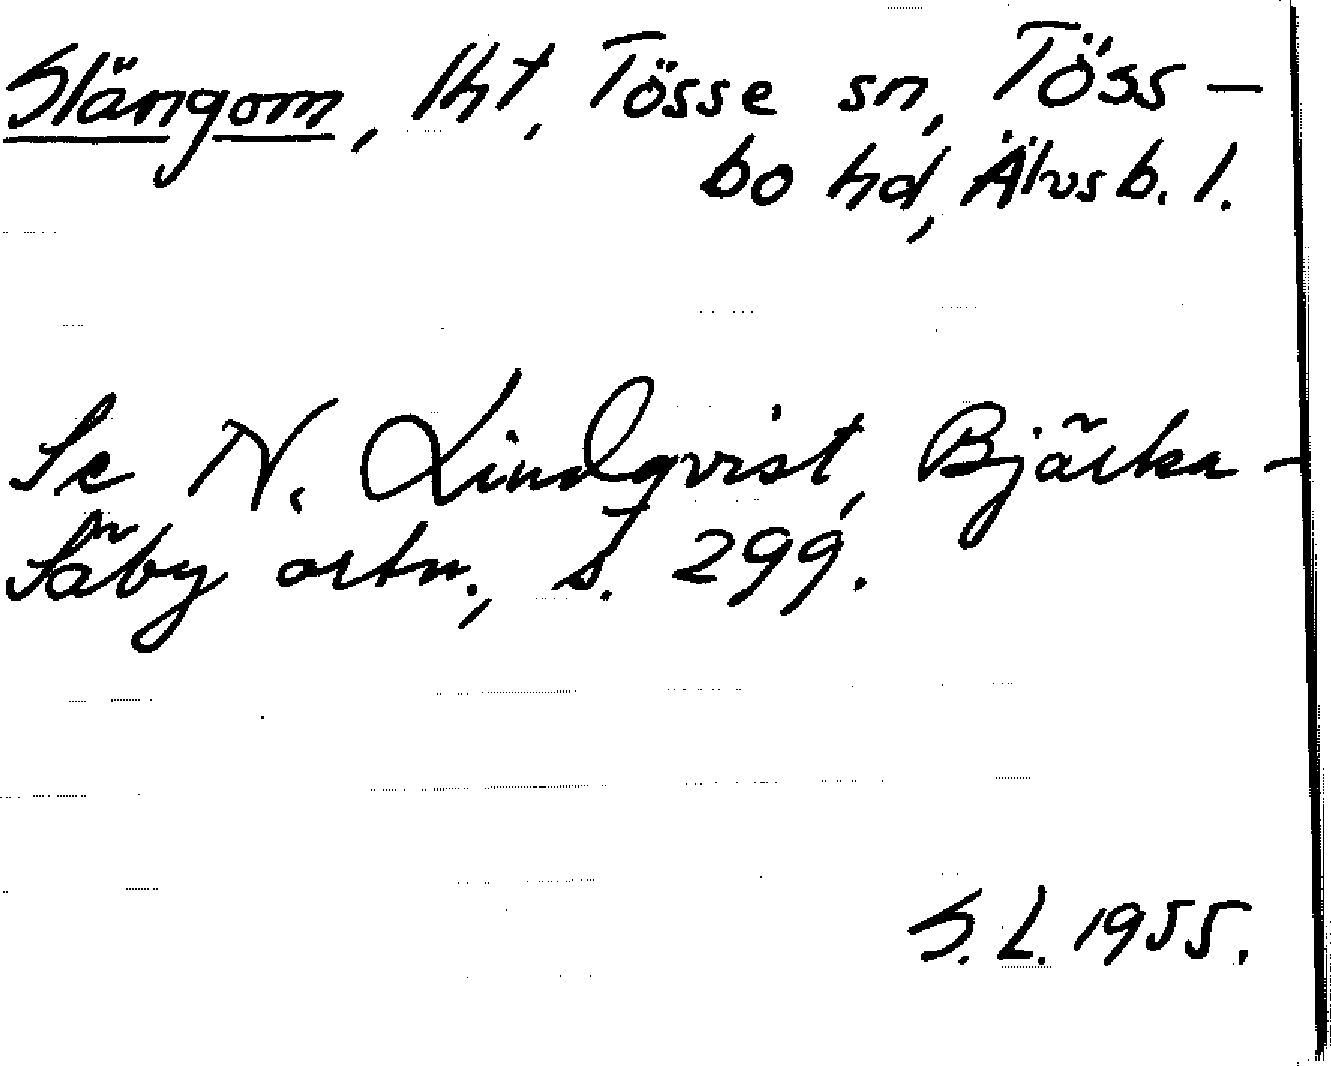 Slängom, lht, Tösse sn, Töss-
bo hd, Älvsb. l.
Se N. Lindqvist, Bjärka-
Säby ortn., s. 299.
S. L. 1955.